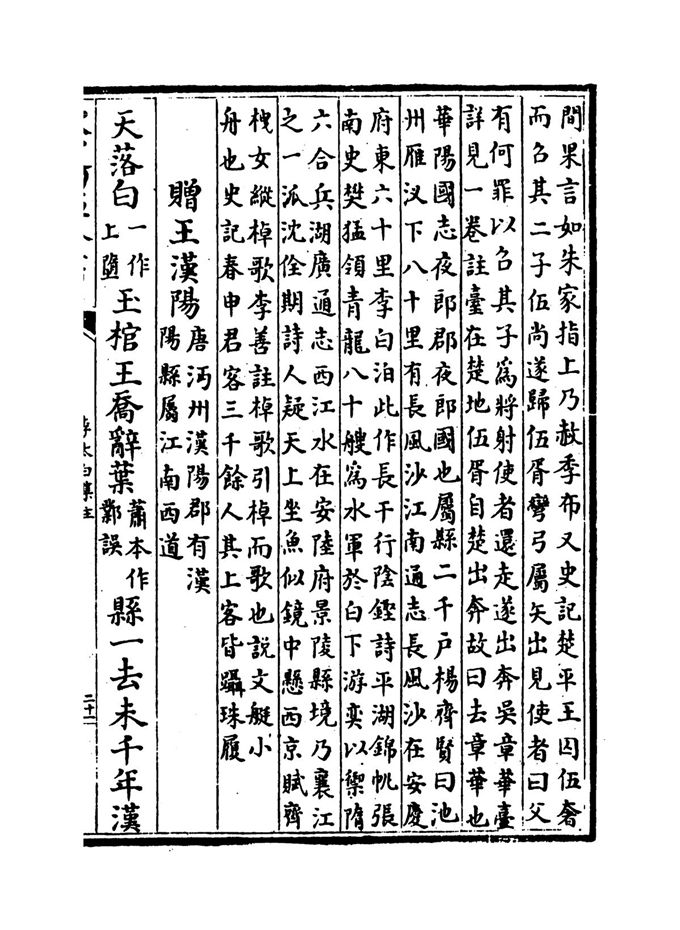 間果言如朱家指上乃赦季布又史記楚平王囚伍奢
而召其二子伍尚遂歸伍胥彎弓屬矢出見使者曰父
有何罪以召其子為將射使者還走遂出奔吳章華臺
詳見一卷註臺在楚地伍胥自楚出奔故曰去章華也
華陽國志夜郎郡夜郎國也屬縣二千戶楊齊賢曰池
州雁汊下八十里有長風沙江南通志長風沙在安慶
府東六十里李白泊此作長干行陰鏗詩平湖錦帆張
南史樊猛領青龍八十艘為水軍於白下游奕以禦隋
六合兵湖廣通志西江水在安陸府景陵縣境乃襄江
之一派沈佺期詩人疑天上坐魚似鏡中懸西京賦齊
栧女縱棹歌李善註棹歌引棹而歌也說文艇小
舟也史記春申君客三千餘人其上客皆躡珠履
贈王漢陽唐沔州漢陽郡有漢
陽縣屬江南西道
天落白一作
上墮玉棺王喬辭葉蕭本作
鄴誤縣一去未千年漢
李太白集註
二十二